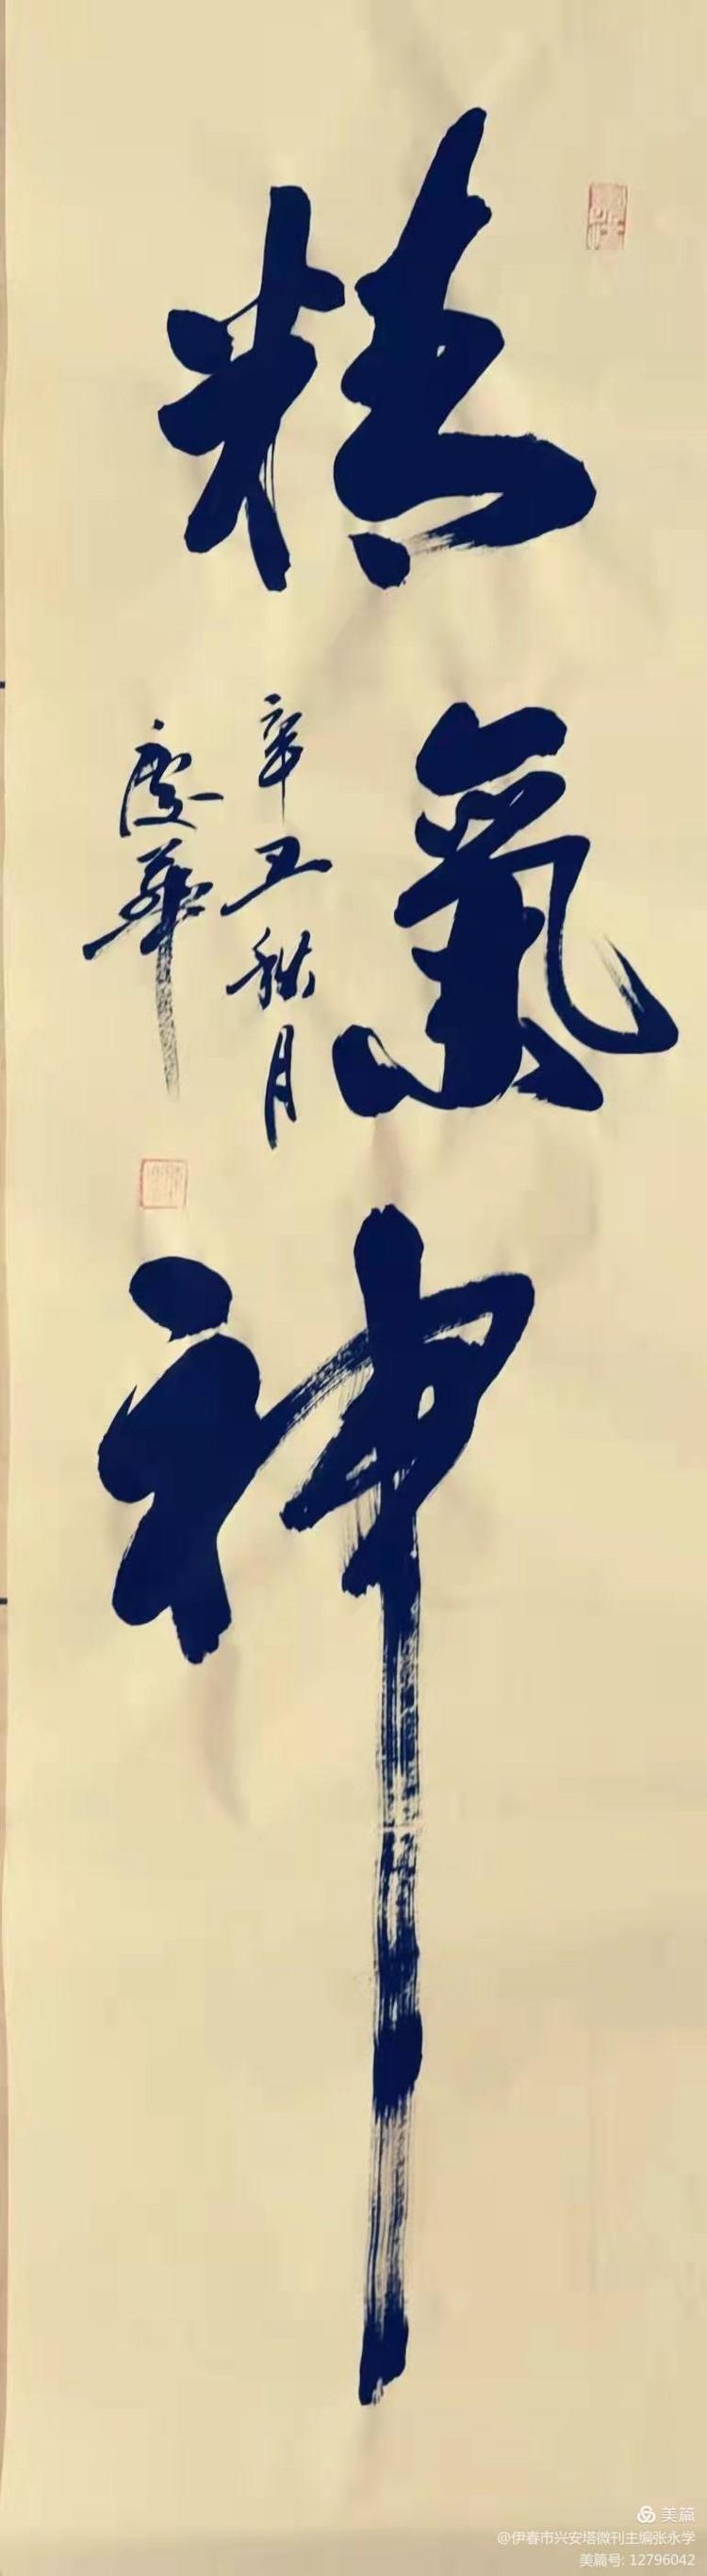 精氣神
辛丑秋月
慶華
美篇
@伊春市兴安塔微刊主编张永学
美篇号: 12796042